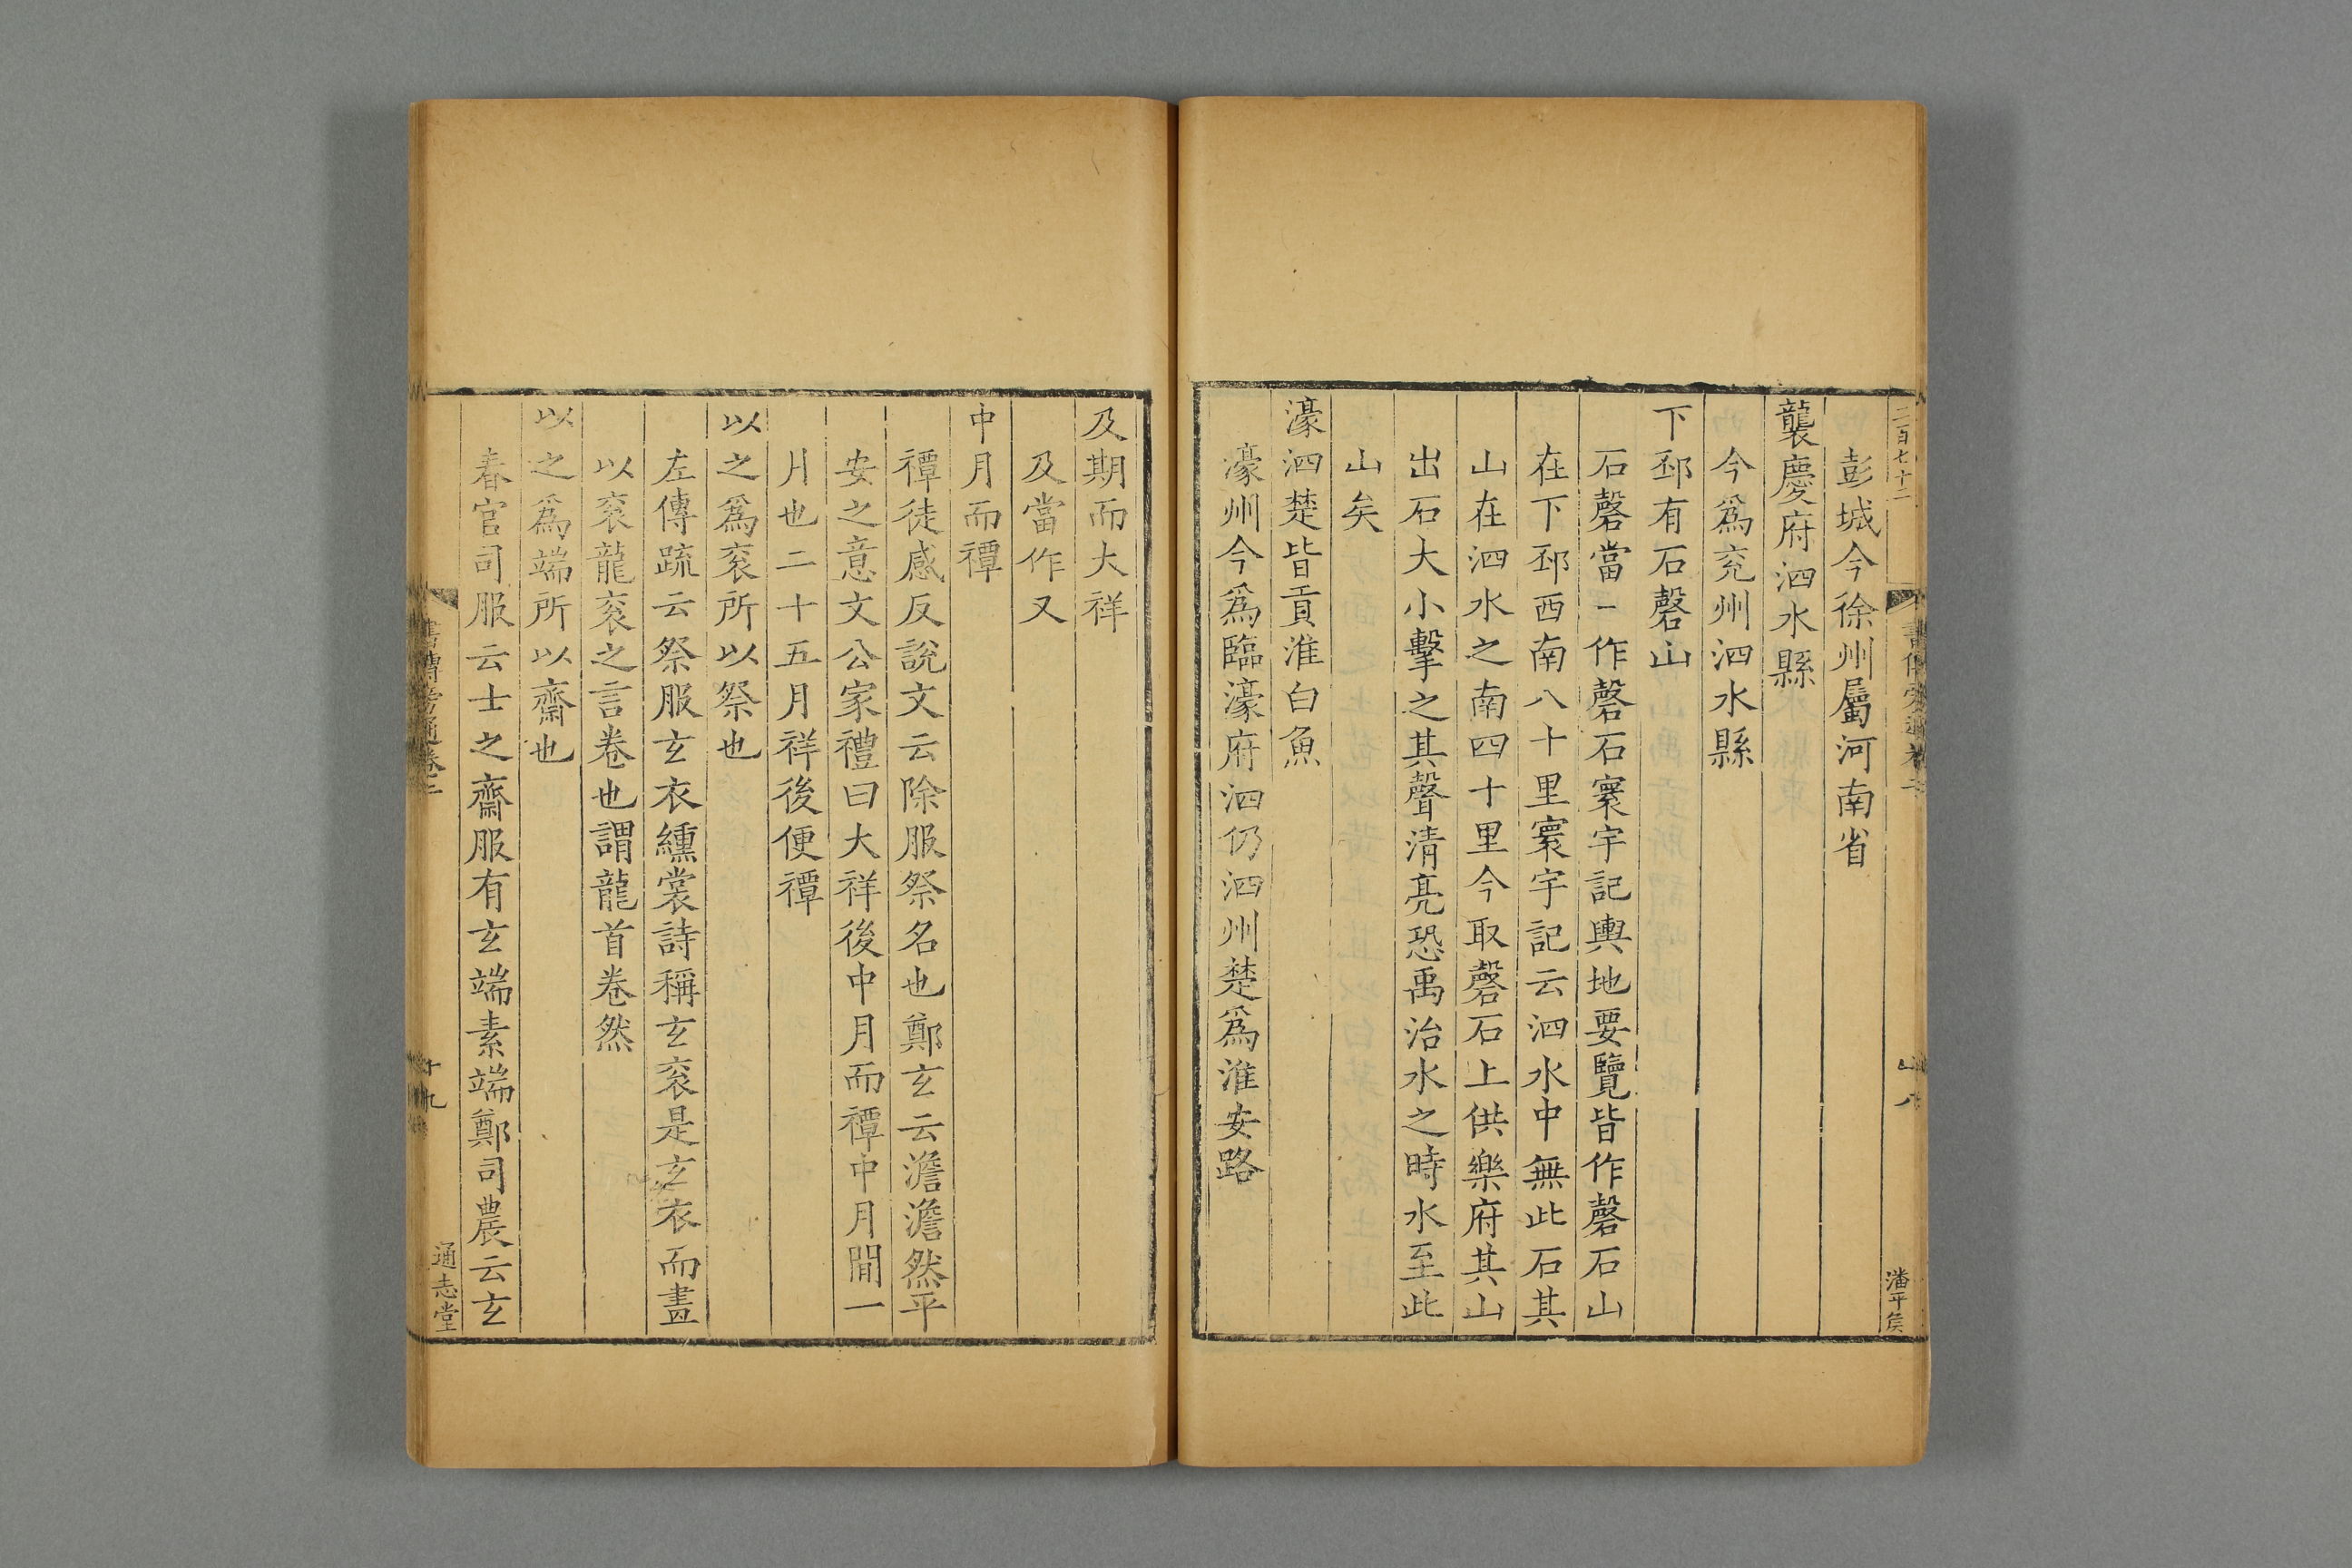 二百七十二
彭城今徐州屬河南省
襲慶府泗水縣
今爲兖州泗水縣
下邳有石磬山
石磬當一作磬石寰宇記輿地要覽皆作磬石山
在下邳西南八十里寰宇記云泗水中無此石其
山在泗水之南四十里今取磬石上供樂府其山
出石大小擊之其聲清亮恐禹治水之時水至此
山矣
濠泗楚皆貢淮白魚
濠州今爲臨濠府泗仍泗州楚爲淮安路
及期而大祥
及當作又
中月而禫
禫徒感反說文云除服祭名也鄭玄云澹澹然平
安之意文公家禮曰大祥後中月而禫中月閒一
月也二十五月祥後便禫
以之爲衮所以祭也
左傳疏云祭服玄衣纁裳詩稱玄衮是玄衣而畫
以衮龍衮之言卷也謂龍首卷然
以之爲端所以齋也
春官司服云士之齋服有玄端素端鄭司農云玄
書傳旁通卷二
十九
通志堂